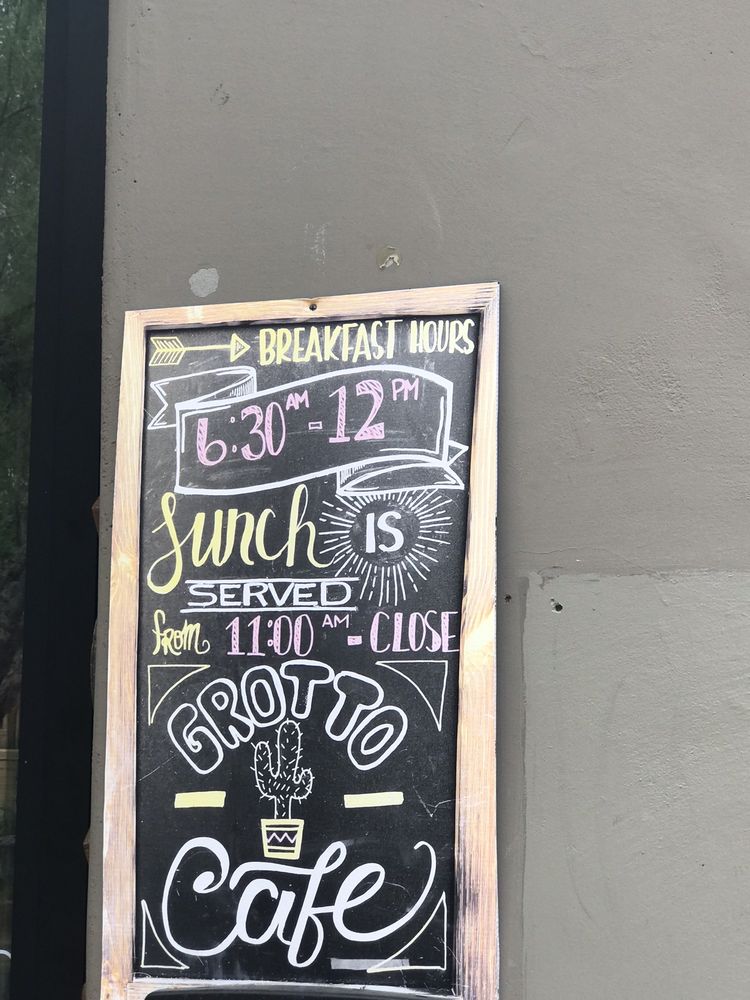 BREAKFAST HOURS
6:30 AM - 12 PM
Lunch IS
SERVED
from 11:00 AM - CLOSE
GROTTO
Cafe